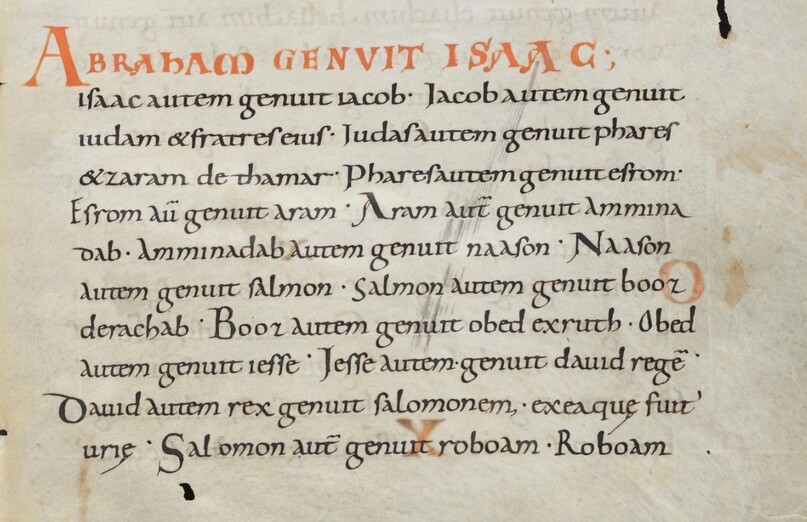 ABRAHAM GENVIT ISAAC;
isaac autem genuit iacob· Jacob autem genuit
iudam & fratres eius· Judas autem genuit phares
& zaram de thamar· Phares autem genuit esrom·
Esrom aū genuit aram· Aram aut̄ genuit Ammina
dab· Amminadab autem genuit naason· Naason
autem genuit salmon· Salmon autem genuit booz
de rachab· Booz autem genuit obed ex ruth· Obed
autem genuit iesse· Jesse autem· genuit dauid regē·
Dauid autem rex genuit salomonem,· ex ea quę fuit
urię· Salomon aut̄ genuit roboam· Roboam